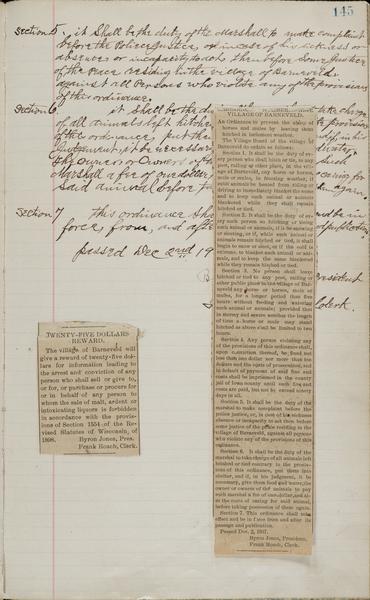 145
Section 5. it Shall be the duty of the Marshall to make complaint
before the Police Justice, or in case of his sickness or
absence or incapacity to act, then before some Justice
of the Peace residing in the village of Barneveld
against all Persons who violate any of the provisions
of this ordinance.
Section 6. it Shall be the
of all animals left hitched
of the ordinance, put them
Judgment, it be necessary
the owners or owners of
Marshall a fee of one dollar,
Said animal before
Section 7 this ordinance
force, from, and after
passed Dec 2nd 19
President
Clerk.
TWENTY-FIVE DOLLARS
REWARD.
The village of Barneveld will
give a reward of twenty-five dol-
lars for information leading to
the arrest and conviction of any
person who shall sell or give to,
or for, or purchase or procure for
or in behalf of any person to
whom the sale of malt, ardent or
intoxicating liquors is forbidden
in accordance with the provis-
ions of Section 1554 of the Re-
vised Statutes of Wisconsin, of
1898.
Byron Jones, Pres.
Frank Roach, Clerk.
VILLAGE OF BARNEVELD.
An Ordinance to prevent the
horses and mules by leaving them
hitched in inclement weather.
The Village Board of the village of
Barneveld do ordain as follows:
Section 1. Shall be the duty of any
person who shall hitch or tie, to any
post, railing or other place, in the vil-
lage of Barneveld, any horse or horses,
mule or mules, in freezing weather, if
said animals be heated from riding or
driving to immediately blanket the same
and to keep such animal or animals
blanketed while they shall remain
hitched or tied.
Section 2. Shall be the duty of any
such person so hitching or tieing
such animal or animals, if it be snowing
or sleeting, or if, while such animal or
animals remain hitched or tied, it shall
begin to snow or sleet, or if the cold is
extreme, to blanket such animal or ani-
mals, and to keep the same blanketed
while they remain hitched or tied.
Section 3. No person shall leave
hitched or tied to any post, railing or
other public place in the village of Bar-
neveld any horse or horses, mule or
mules, for a longer period than five
hours without feeding and watering
such animal or animals; provided that
in stormy and severe weather the length
of time a horse or mule may stand
hitched as above shall be limited to two
hours.
Section 4. Any person violating any
of the provisions of this ordinance shall,
upon conviction thereof, be fined not
less than one dollar nor more than ten
dollars and the costs of prosecution, and
in default of payment of said fine and
costs shall be imprisoned in the county
jail of Iowa county until such fine and
costs are paid, but not to exceed ninety
days in all.
Section 5. It shall be the duty of the
marshal to make complaint before the
police justice, or, in case of his sickness
absence or incapacity to act then before
some justice of the peace residing in the
village of Barneveld, against all persons
who violate any of the provisions of this
ordinance.
Section 6. It shall be the duty of the
marshal to take charge of all animals left
hitched or tied contrary to the provis-
ions of this ordinance, put them into
shelter, and if, in his judgment, it be
necessary, give them food and water; the
owner or owners of the animals to pay
such marshal a fee of one dollar, and al-
so the costs of caring for said animal,
before taking possession of them again.
Section 7. This ordinance shall take
effect and be in force from and after its
passage and publication.
Passed Dec. 2, 1907.
Byron Jones, President.
Frank Roach, Clerk.